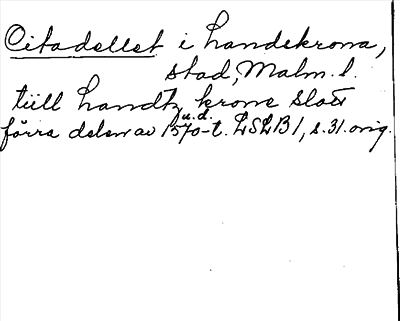 Citadellet i Landskrona,
stad, Malm. l.
tiill Landtz krone Slott
u.d.
förra delen av 1570-t. LSLB1, s. 31. orig.